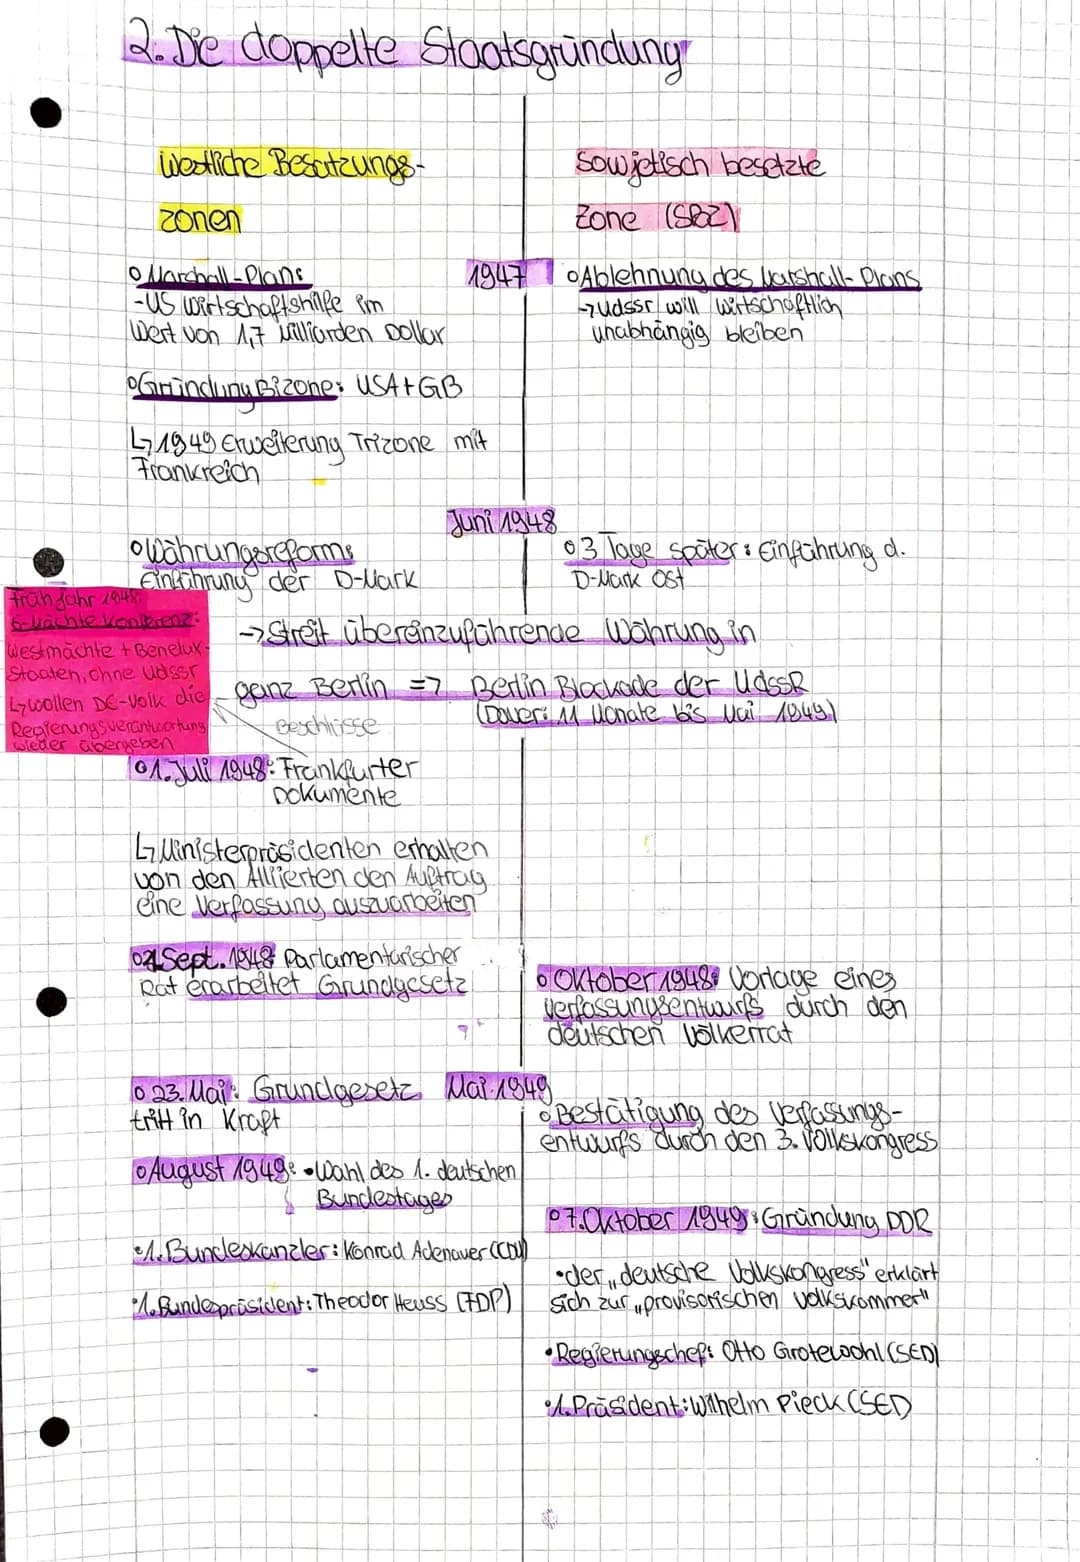 2. Die doppelte Staatsgründung
Westliche Besatzungs-
zonen
Sowjetisch besetzte
Zone (SBZ)
1947
o Marshall-Plan:
-US Wirtschaftshilfe im
Wert von 1,7 Milliarden Dollar
o Gründung Bizone: USA+GB
↳ 1949 Erweiterung Trizone mit
Frankreich
o Ablehnung des Marshall-Plans
→ UdSSR will wirtschaftlich
unabhängig bleiben
Juni 1948
o Währungsreform:
Einführung der D-Mark
o 3 Tage später: Einführung d.
D-Mark Ost
→ Streit über einzuführende Währung in
ganz Berlin => Berlin Blockade der UdSSR
(Dauer: 11 Monate bis Mai 1949)
Frühjahr 1948:
6-Mächte Konferenz:
Westmächte + Benelux-
Staaten, ohne UdSSR
↳ wollen DE-Volk die
Regierungsverantwortung
wieder übergeben
Beschlüsse
o 1. Juli 1948: Frankfurter
Dokumente
↳ Ministerpräsidenten erhalten
von den Alliierten den Auftrag
eine Verfassung auszuarbeiten
Sept. 1948 Parlamentarischer
Rat erarbeitet Grundgesetz
o Oktober 1948: Vorlage eines
Verfassungsentwurfs durch den
deutschen Völkerrat
Mai 1949
o 23. Mai: Grundgesetz
tritt in Kraft
o Bestätigung des Verfassungs-
entwurfs durch den 3. Volkskongress
o August 1949: • Wahl des 1. deutschen
Bundestages
• 1. Bundeskanzler: Konrad Adenauer (CDU)
• 1. Bundespräsident: Theodor Heuss (FDP)
o 7. Oktober 1949: Gründung DDR
• der „deutsche Volkskongress" erklärt
sich zur „provisorischen Volkskammer"
• Regierungschef: Otto Grotewohl (SED)
• 1. Präsident: Wilhelm Pieck (SED)